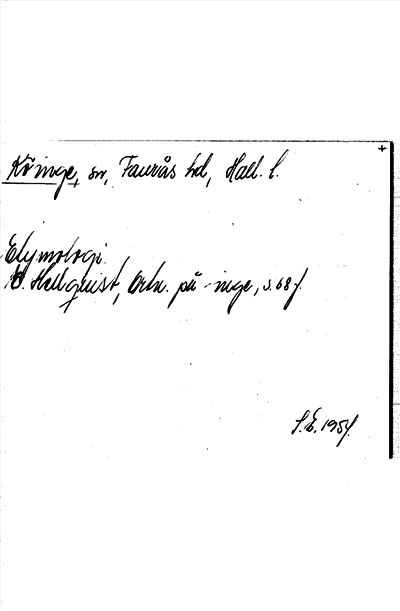 Köinge, sn, Faurås hd, Hall. l.
Etymologi.
E. Hellquist, Ortn. på -inge, s. 68 f.
S.E. 195